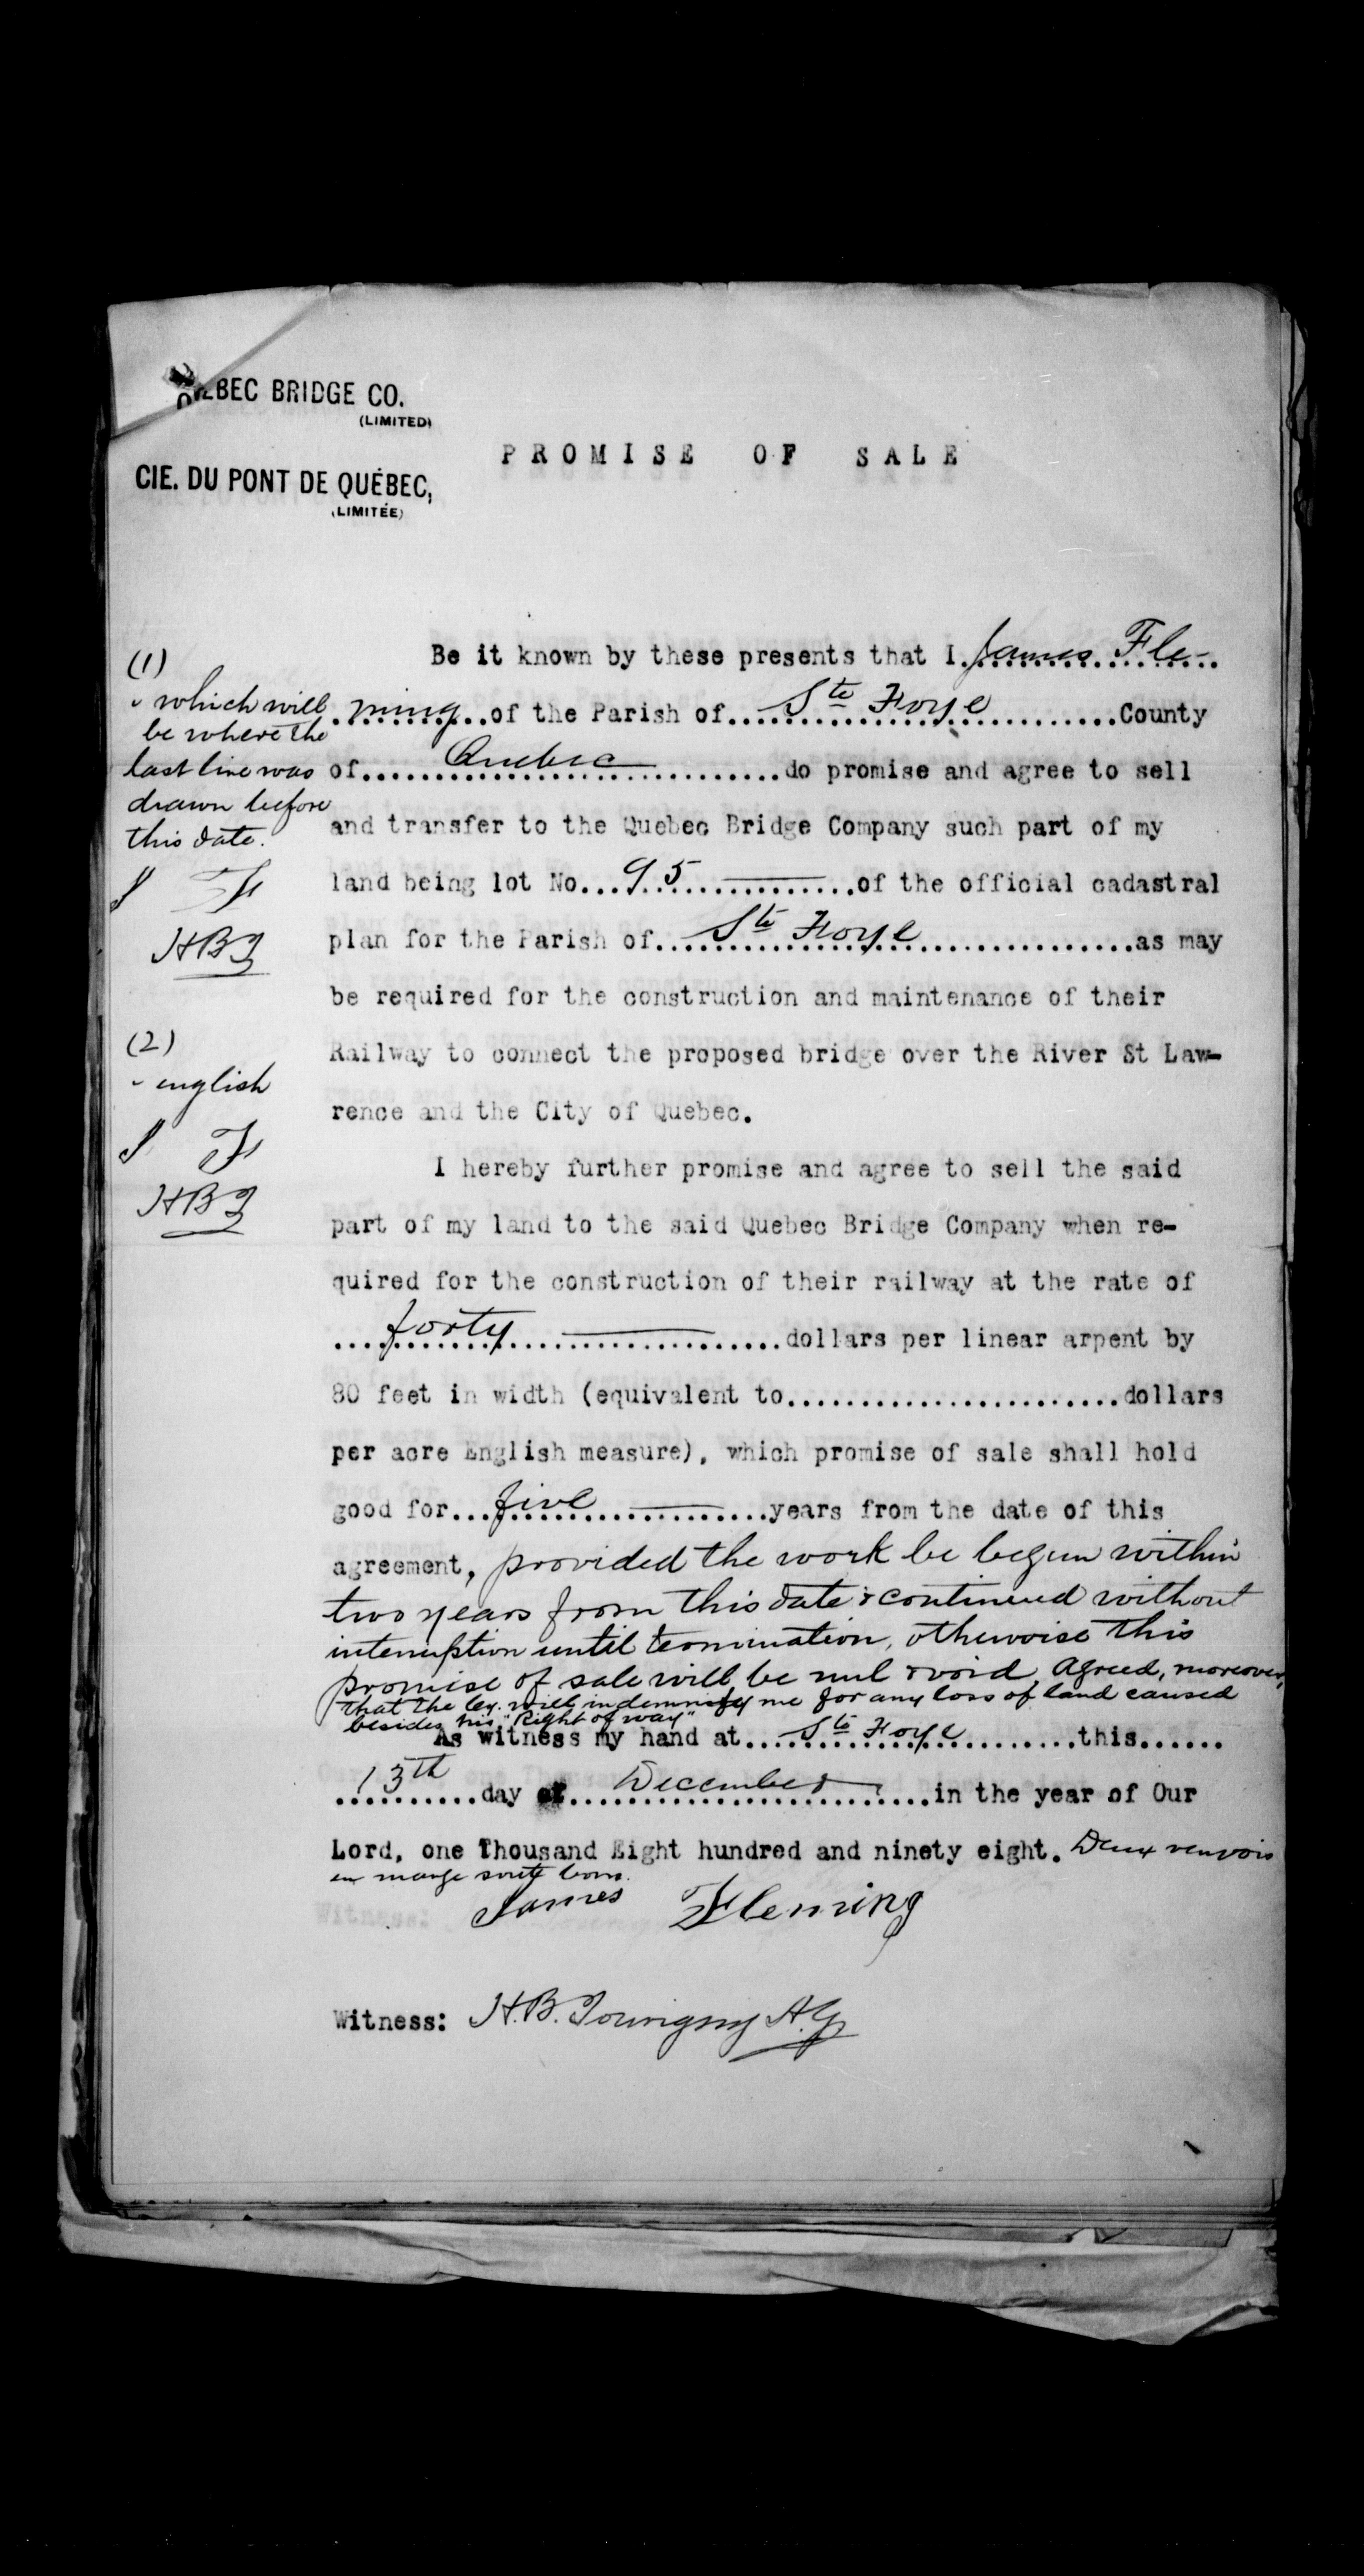 QUEBEC BRIDGE CO.
(LIMITED)
CIE. DU PONT DE QUÉBEC,
(LIMITÉE)
PROMISE OF SALE
Be it known by these presents that I James Fle-
ming of the Parish of Ste Foye County
of Quebec do promise and agree to sell
and transfer to the Quebec Bridge Company such part of my
land being lot No. 95 of the official cadastral
plan for the Parish of Ste Foye as may
be required for the construction and maintenance of their
Railway to connect the proposed bridge over the River St Law-
rence and the City of Quebec.
I hereby further promise and agree to sell the said
part of my land to the said Quebec Bridge Company when re-
quired for the construction of their railway at the rate of
forty dollars per linear arpent by
80 feet in width (equivalent to........................dollars
per acre English measure), which promise of sale shall hold
good for five years from the date of this
agreement, provided the work be begun within
two years from this date & continued without
interruption until termination, otherwise this
promise of sale will be nul & void. Agreed, moreover,
that the Cy. will indemnify me for any loss of land caused
besides his "Right of way"
As witness my hand at Ste Foye this......
13th day of December in the year of Our
Lord, one Thousand Eight hundred and ninety eight. Deux renvois
en marge sont bons.
James Fleming
Witness: H.B. Tourigny A.G.
(1)
which will
be where the
last line was
drawn before
this date.
J F
HBT
(2)
english
J F
HBT